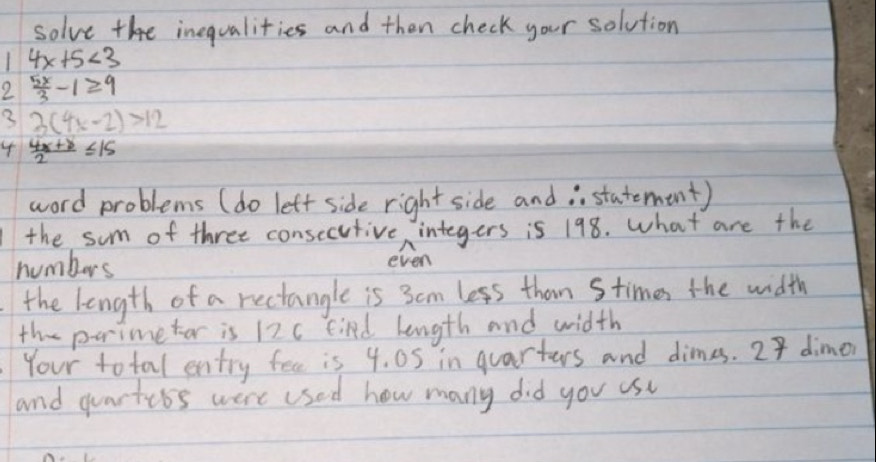 solve the inequalities and then check your solution
1 4x+5<3
2 5x/3 -1≥9
3 3(4x-2)>12
4 4x+8/2 ≤15
word problems (do left side right side and ∴ statement)
1 the sum of three consecutive ^ integers is 198. What are the
numbers even
the length of a rectangle is 3cm less than 5 times the width
the perimeter is 126 find length and width
Your total entry fee is 4.05 in quarters and dimes. 27 dimes
and quarters were used how many did you use